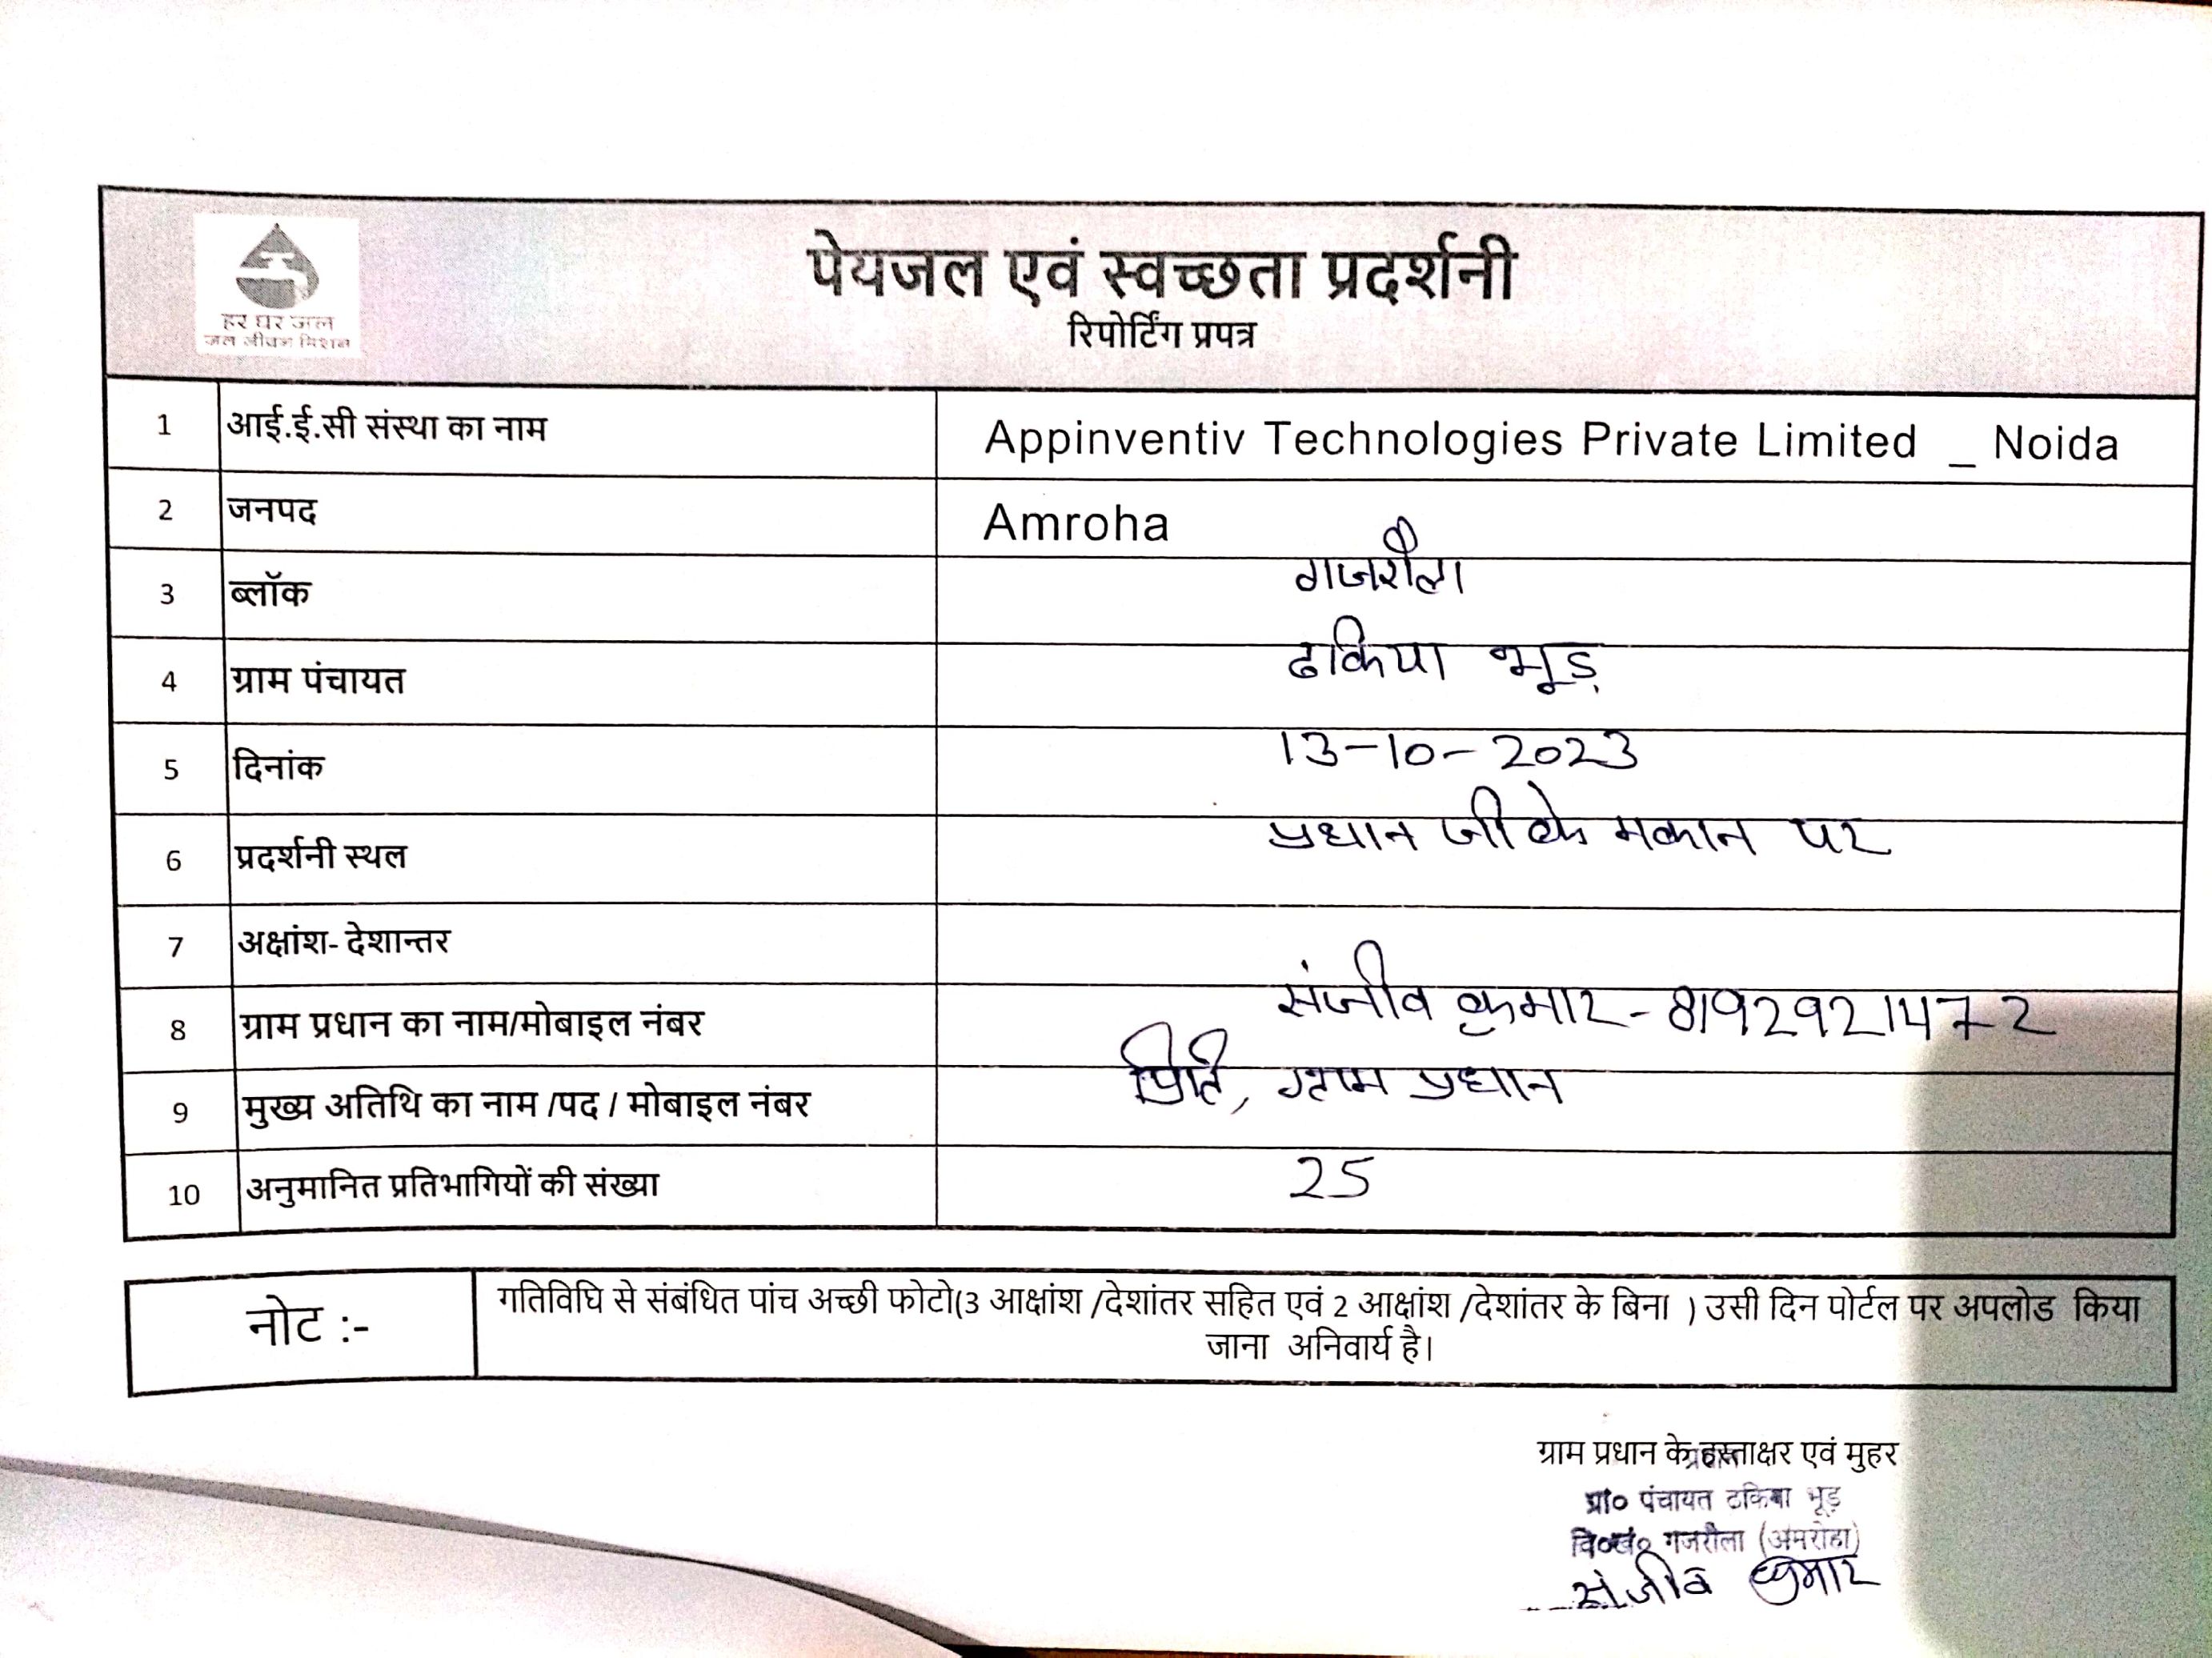 हर घर जल
जल जीवन मिशन
पेयजल एवं स्वच्छता प्रदर्शनी
रिपोर्टिंग प्रपत्र
1 आई.ई.सी संस्था का नाम Appinventiv Technologies Private Limited _ Noida
2 जनपद Amroha
3 ब्लॉक गजरौला
4 ग्राम पंचायत ढकिया भूड़
5 दिनांक 13-10-2023
6 प्रदर्शनी स्थल प्रधान जी के मकान पर
7 अक्षांश- देशान्तर
8 ग्राम प्रधान का नाम/मोबाइल नंबर संजीव कुमार - 8192921472
9 मुख्य अतिथि का नाम /पद / मोबाइल नंबर प्रिति, ग्राम प्रधान
10 अनुमानित प्रतिभागियों की संख्या 25
नोट :- गतिविधि से संबंधित पांच अच्छी फोटो(3 आक्षांश /देशांतर सहित एवं 2 आक्षांश /देशांतर के बिना ) उसी दिन पोर्टल पर अपलोड किया
जाना अनिवार्य है।
ग्राम प्रधान के हस्ताक्षर एवं मुहर
ग्रा० पंचायत ढकिया भूड़
वि०खं० गजरौला (अमरोहा)
संजीव कुमार